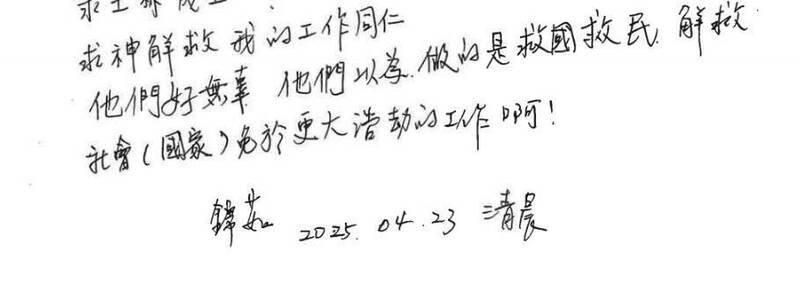 求神解救我的工作同仁
他們好無辜 他們以為.做的是救國救民.解救
社會(國家)免於更大浩劫的工作啊!
錦茹 2025.04.23 清晨